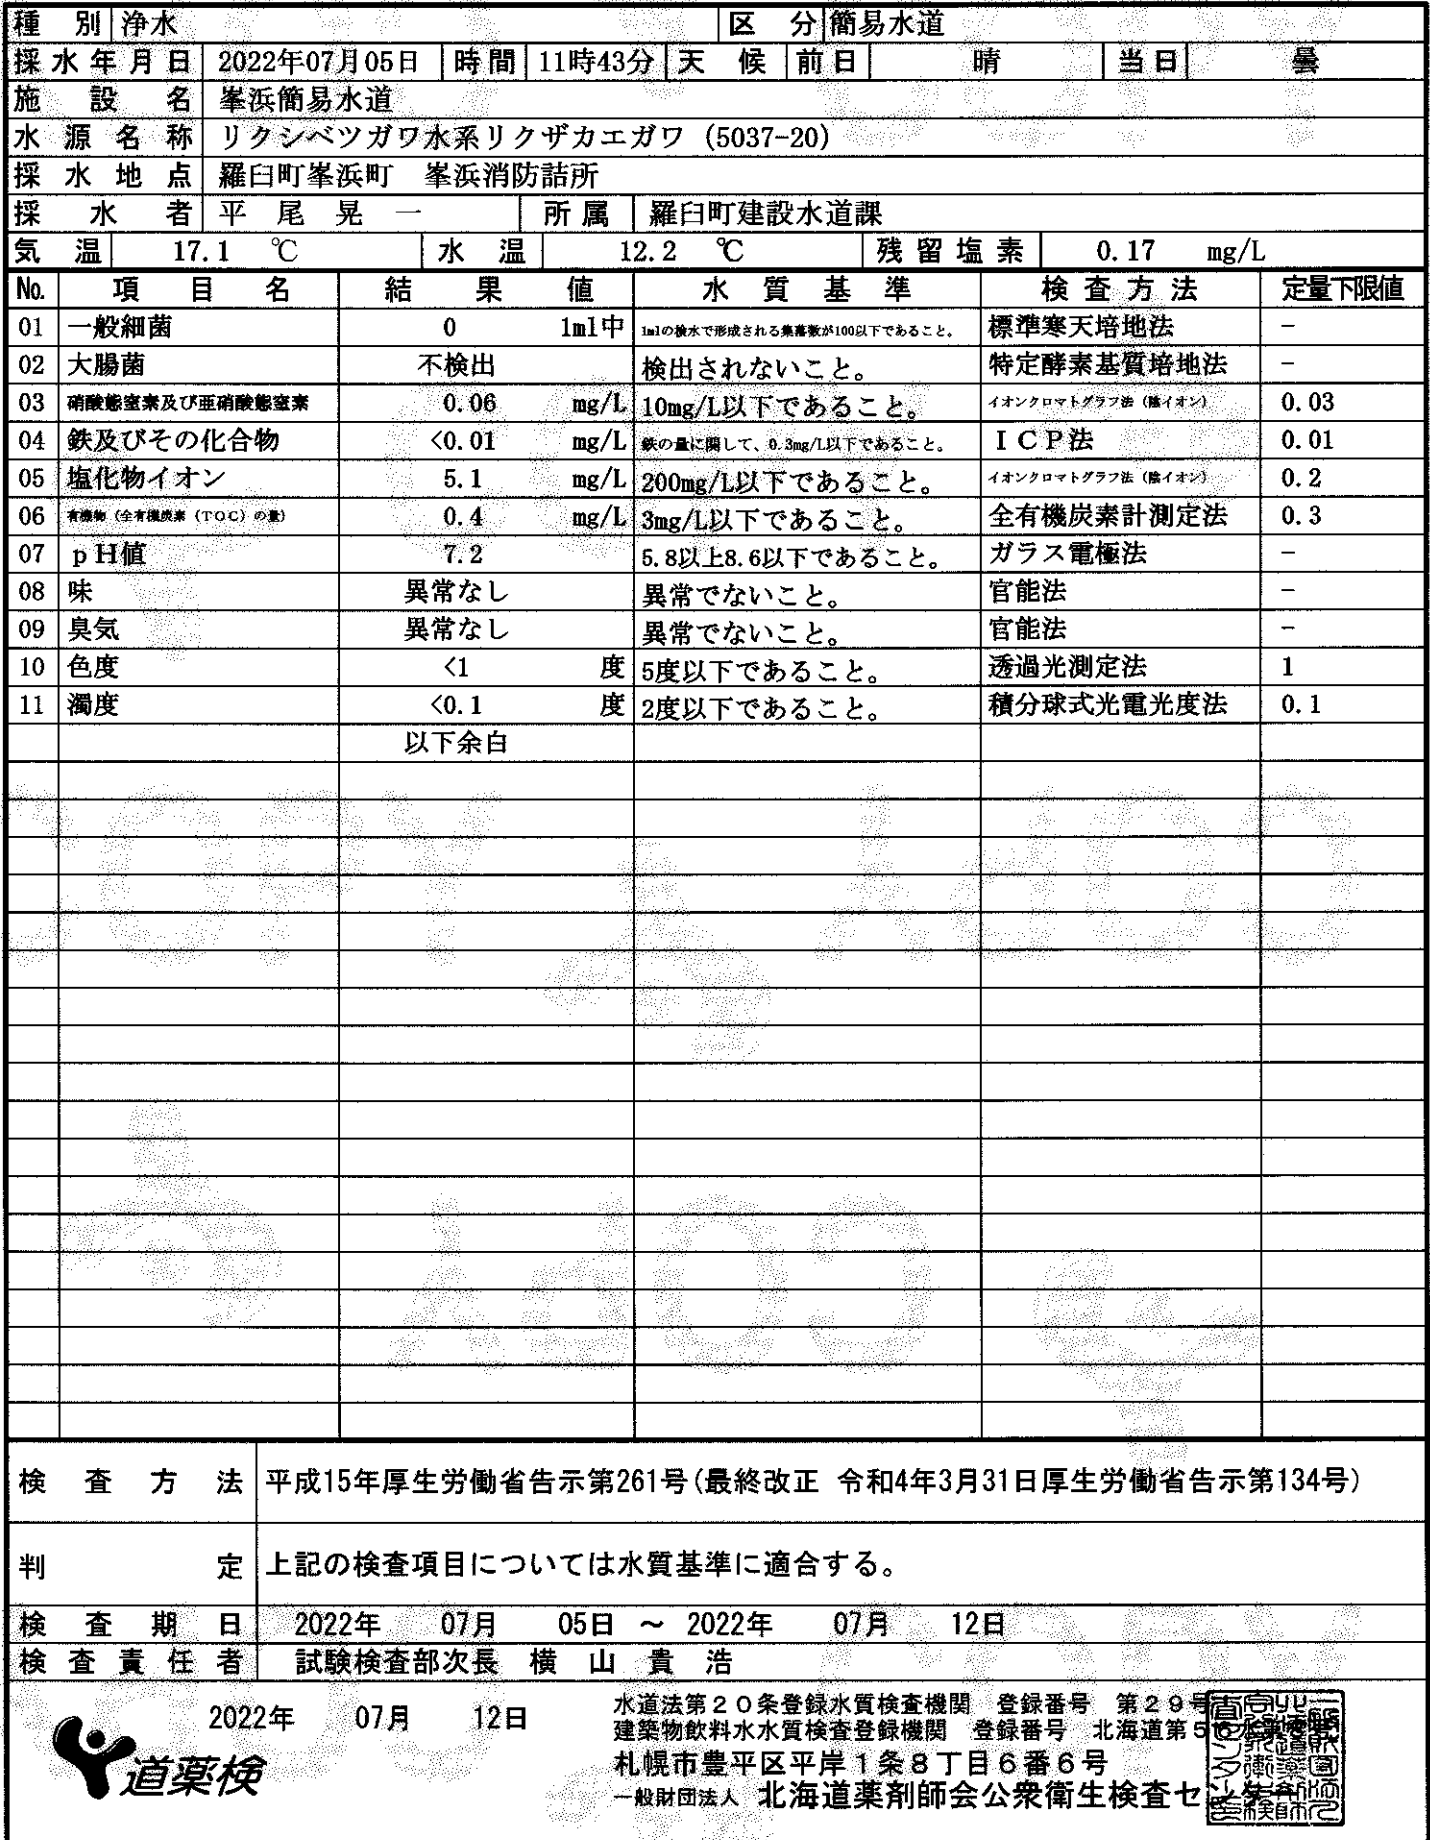 種別 浄水 区分 簡易水道
採水年月日 2022年07月05日 時間 11時43分 天候 前日 晴 当日 曇
施設名 峯浜簡易水道
水源名称 リクシベツガワ水系リクザカエガワ (5037-20)
採水地点 羅臼町峯浜町 峯浜消防詰所
採水者 平尾晃一 所属 羅臼町建設水道課
気温 17.1 ℃ 水温 12.2 ℃ 残留塩素 0.17 mg/L
No. 項目名 結果値 水質基準 検査方法 定量下限値
01 一般細菌 0 1ml中 1mlの検水で形成される集落数が100以下であること。 標準寒天培地法 -
02 大腸菌 不検出 検出されないこと。 特定酵素基質培地法 -
03 硝酸態窒素及び亜硝酸態窒素 0.06 mg/L 10mg/L以下であること。 イオンクロマトグラフ法（陰イオン） 0.03
04 鉄及びその化合物 <0.01 mg/L 鉄の量に関して、0.3mg/L以下であること。 ＩＣＰ法 0.01
05 塩化物イオン 5.1 mg/L 200mg/L以下であること。 イオンクロマトグラフ法（陰イオン） 0.2
06 有機物（全有機炭素（TOC）の量） 0.4 mg/L 3mg/L以下であること。 全有機炭素計測定法 0.3
07 ｐH値 7.2 5.8以上8.6以下であること。 ガラス電極法 -
08 味 異常なし 異常でないこと。 官能法 -
09 臭気 異常なし 異常でないこと。 官能法 -
10 色度 <1 度 5度以下であること。 透過光測定法 1
11 濁度 <0.1 度 2度以下であること。 積分球式光電光度法 0.1
以下余白
検査方法 平成15年厚生労働省告示第261号(最終改正 令和4年3月31日厚生労働省告示第134号)
判定 上記の検査項目については水質基準に適合する。
検査期日 2022年 07月 05日 ～ 2022年 07月 12日
検査責任者 試験検査部次長 横山貴浩
2022年 07月 12日
水道法第２０条登録水質検査機関 登録番号 第２９号
建築物飲料水水質検査登録機関 登録番号 北海道第５６水
札幌市豊平区平岸１条８丁目６番６号
一般財団法人 北海道薬剤師会公衆衛生検査センター
道薬検